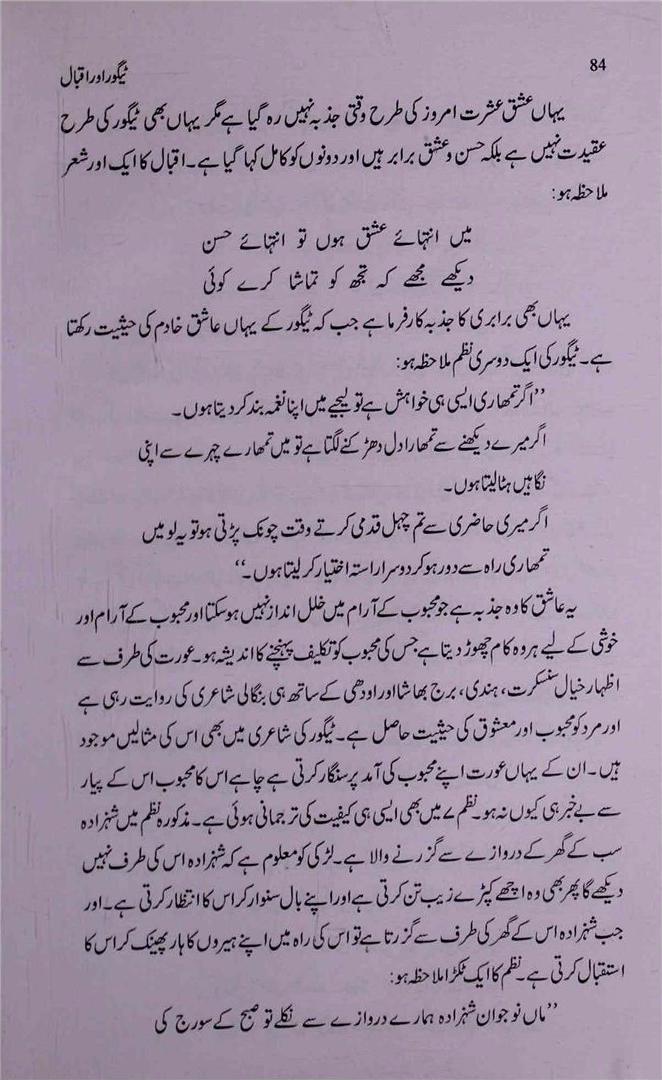 84
ٹیگور اور اقبال
یہاں عشق عشرت امروز کی طرح وقتی جذبہ نہیں رہ گیا ہے مگر یہاں بھی ٹیگور کی طرح
عقیدت نہیں ہے بلکہ حسن و عشق برابر ہیں اور دونوں کو کامل کہا گیا ہے۔ اقبال کا ایک اور شعر
ملاحظہ ہو:
میں انتہائے عشق ہوں تو انتہائے حسن
دیکھے مجھے کہ تجھ کو تماشا کرے کوئی
یہاں بھی برابری کا جذبہ کارفرما ہے جب کہ ٹیگور کے یہاں عاشق خادم کی حیثیت رکھتا
ہے۔ ٹیگور کی ایک دوسری نظم ملاحظہ ہو:
”اگر تمھاری ایسی ہی خواہش ہے تو لیجیے میں اپنا نغمہ بند کر دیتا ہوں۔
اگر میرے دیکھنے سے تمھارا دل دھڑکنے لگتا ہے تو میں تمھارے چہرے سے اپنی
نگاہیں ہٹا لیتا ہوں۔
اگر میری حاضری سے تم چہل قدمی کرتے وقت چونک پڑتی ہو تو یہ لو میں
تمھاری راہ سے دور ہو کر دوسرا راستہ اختیار کر لیتا ہوں۔“
یہ عاشق کا وہ جذبہ ہے جو محبوب کے آرام میں خلل انداز نہیں ہو سکتا اور محبوب کے آرام اور
خوشی کے لیے ہر وہ کام چھوڑ دیتا ہے جس کی محبوب کو تکلیف پہنچنے کا اندیشہ ہو۔ عورت کی طرف سے
اظہار خیال سنسکرت، ہندی، برج بھاشا اور اودھی کے ساتھ ہی بنگالی شاعری کی روایت رہی ہے
اور مرد کو محبوب اور معشوق کی حیثیت حاصل ہے۔ ٹیگور کی شاعری میں بھی اس کی مثالیں موجود
ہیں۔ ان کے یہاں عورت اپنے محبوب کی آمد پر سنگار کرتی ہے چاہے اس کا محبوب اس کے پیار
سے بے خبر ہی کیوں نہ ہو۔ نظم ۷ میں بھی ایسی ہی کیفیت کی ترجمانی ہوئی ہے۔ مذکورہ نظم میں شہزادہ
سب کے گھر کے دروازے سے گزرنے والا ہے۔ لڑکی کو معلوم ہے کہ شہزادہ اس کی طرف نہیں
دیکھے گا پھر بھی وہ اچھے کپڑے زیب تن کرتی ہے اور اپنے بال سنوار کر اس کا انتظار کرتی ہے۔ اور
جب شہزادہ اس کے گھر کی طرف سے گزرتا ہے تو اس کی راہ میں اپنے ہیروں کا ہار پھینک کر اس کا
استقبال کرتی ہے۔ نظم کا ایک ٹکڑا ملاحظہ ہو:
”ماں نوجوان شہزادہ ہمارے دروازے سے نکلے تو صبح کے سورج کی